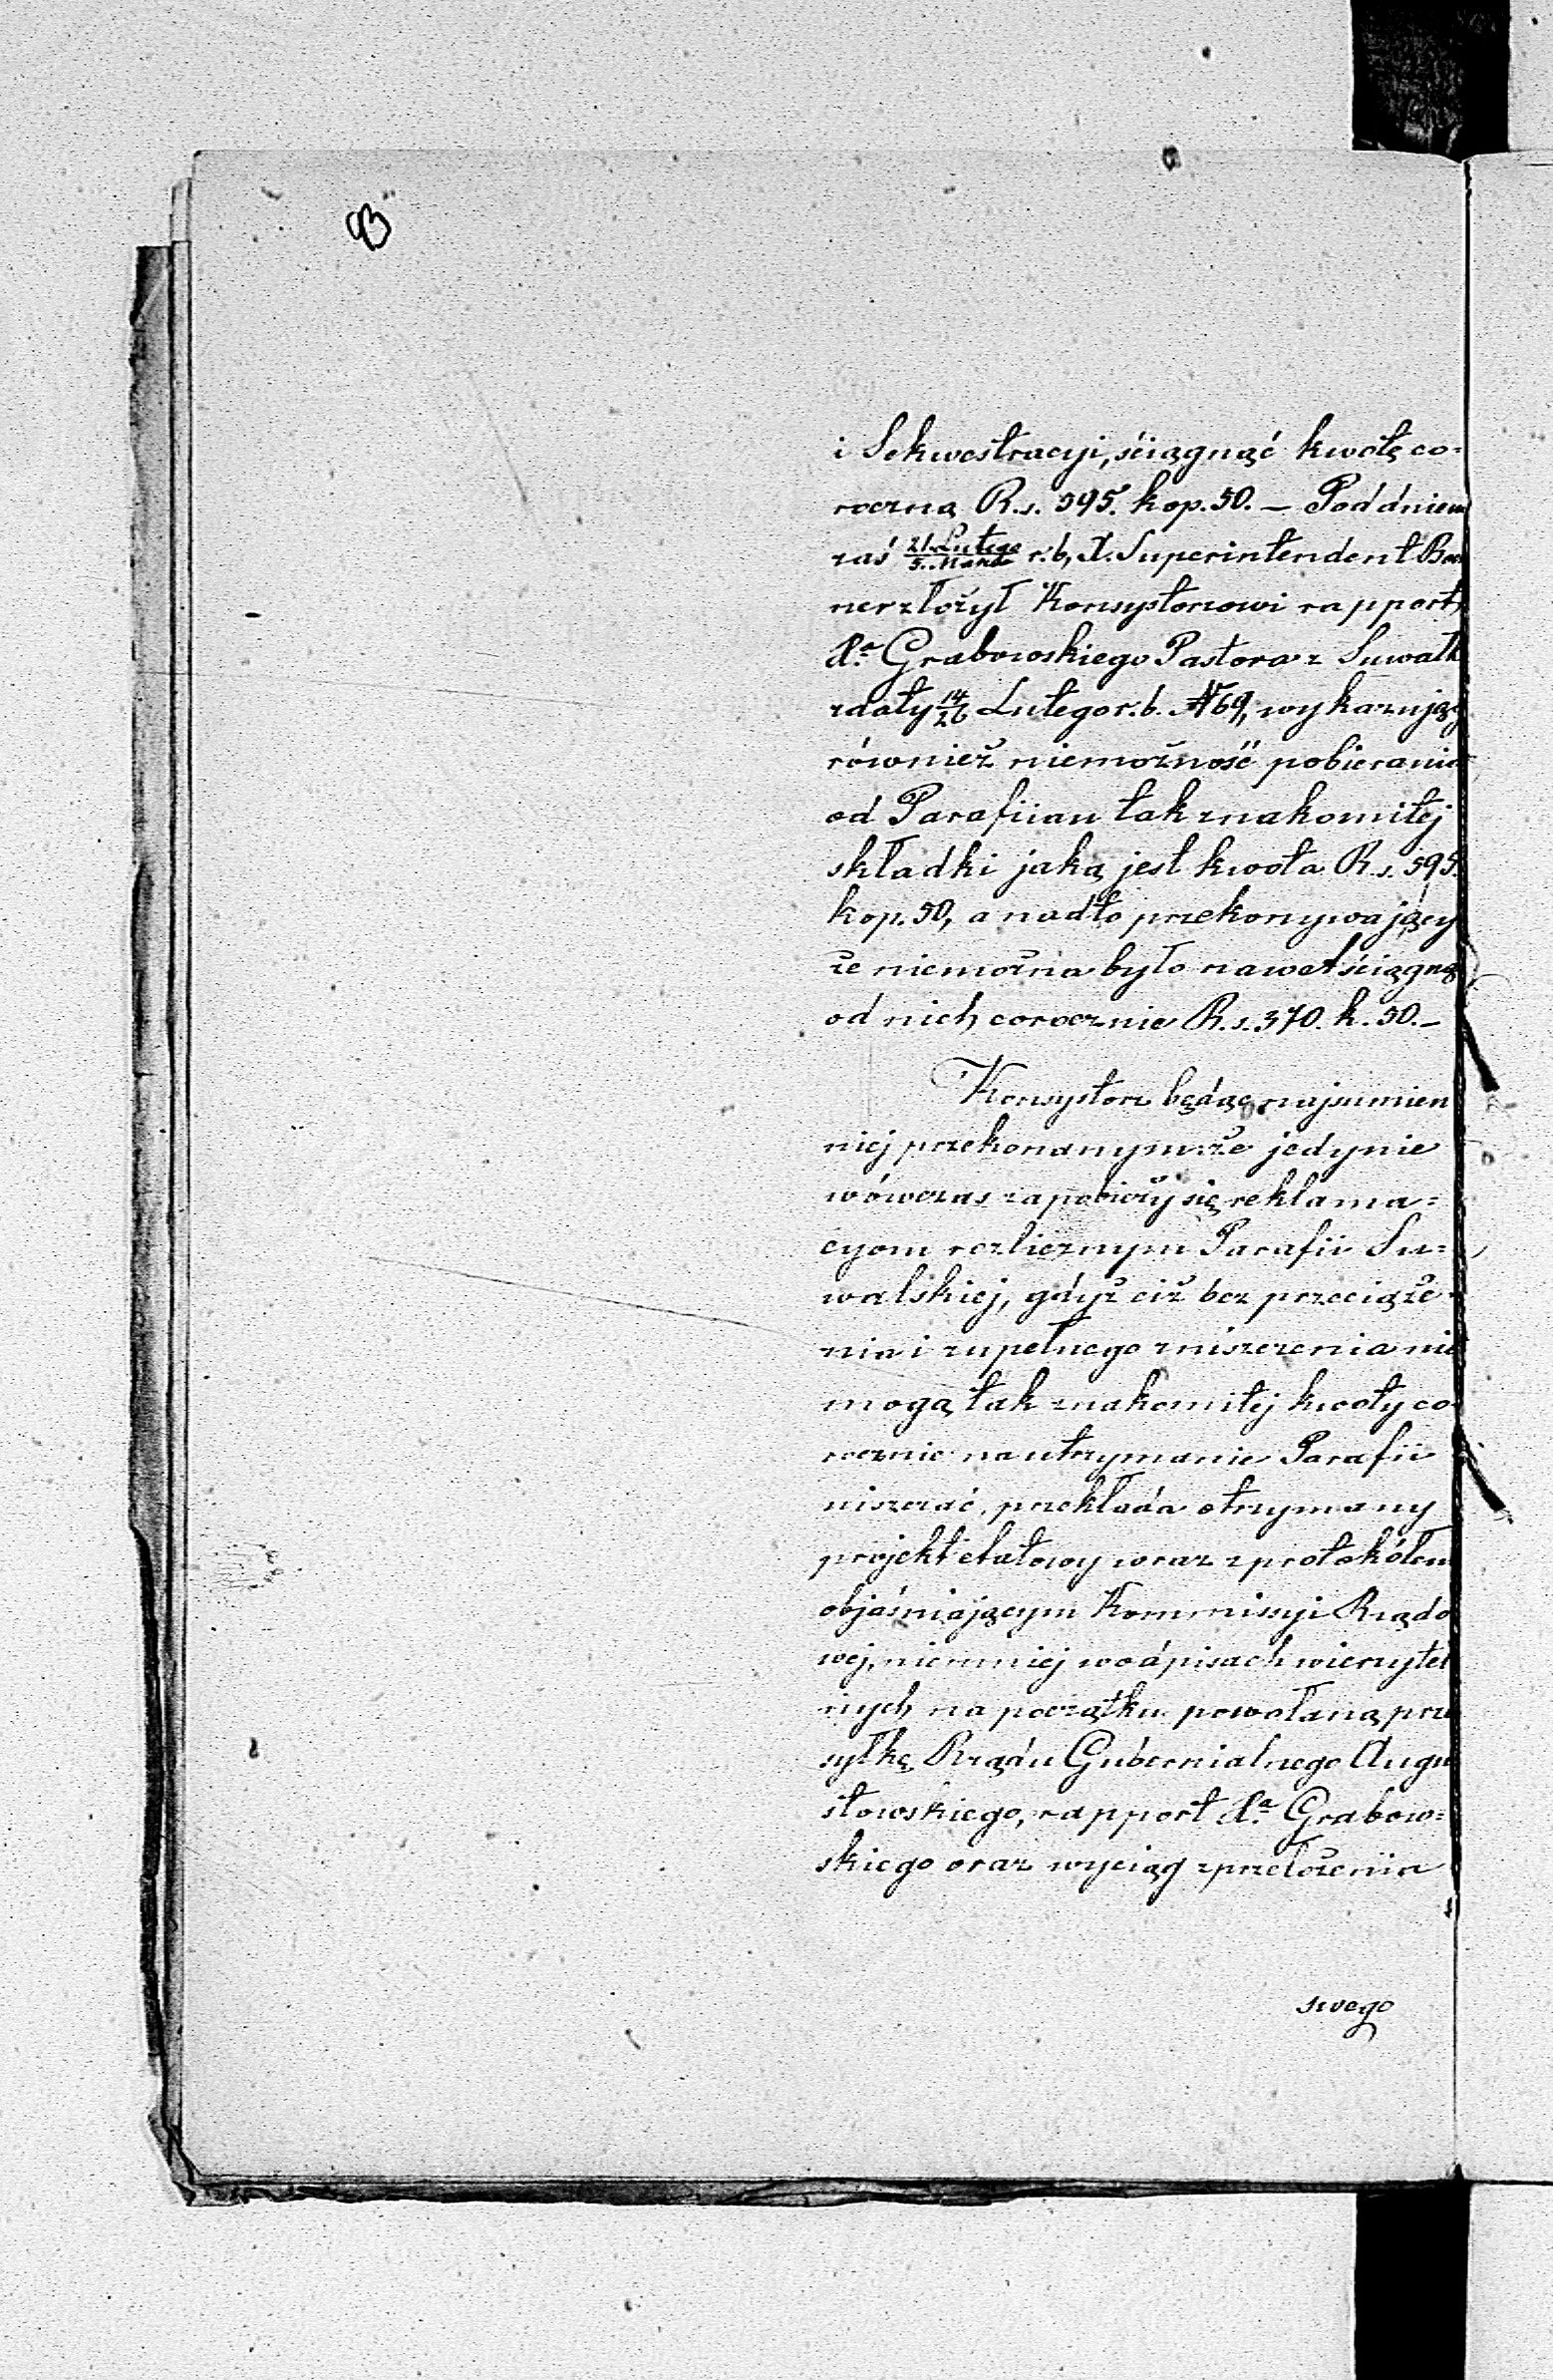 93
i Sekwestracyi, ściągnąć kwotę co-
roczną R.s. 595. kop. 50. — Pod dniem
zaś 21 Lutego/5 Marca r.b, X. Superintendent
ner złożył Konsystorzowi rapport
Xa Grabowskiego Pastora z Suwałk
z daty 14/26 Lutego r.b. N 69, wykazując
również niemożność pobierania
od Parafiian tak znakomitej
składki jaką jest kwota R.s. 595.
kop. 50, a nadto przekonywający
że niemożna było nawet ściągną
od nich corocznie R.s. 370. k. 50. —
Konsystorz będąc najsumien
niej przekonanym że jedynie
wówczas zapobieży się reklama=
cyom rozlicznym Parafii Su=
walskiej, gdyż ciż bez przeciąże-
nia i zupełnego zniszczenia nie
mogą tak znakomitej kwoty co-
rocznie na utrzymanie Parafii
niszczać, przekłada otrzymany
projekt etatowy wraz z protokółem
objaśniającym Kommissyi Rządo
wej, niemniej w odpisach wierzytel
nych na początku powołaną prze
syłkę Rządu Gubernialnego Augu
stowskiego, rapport Xa Grabow=
skiego oraz wyciąg z przełożenia
swego